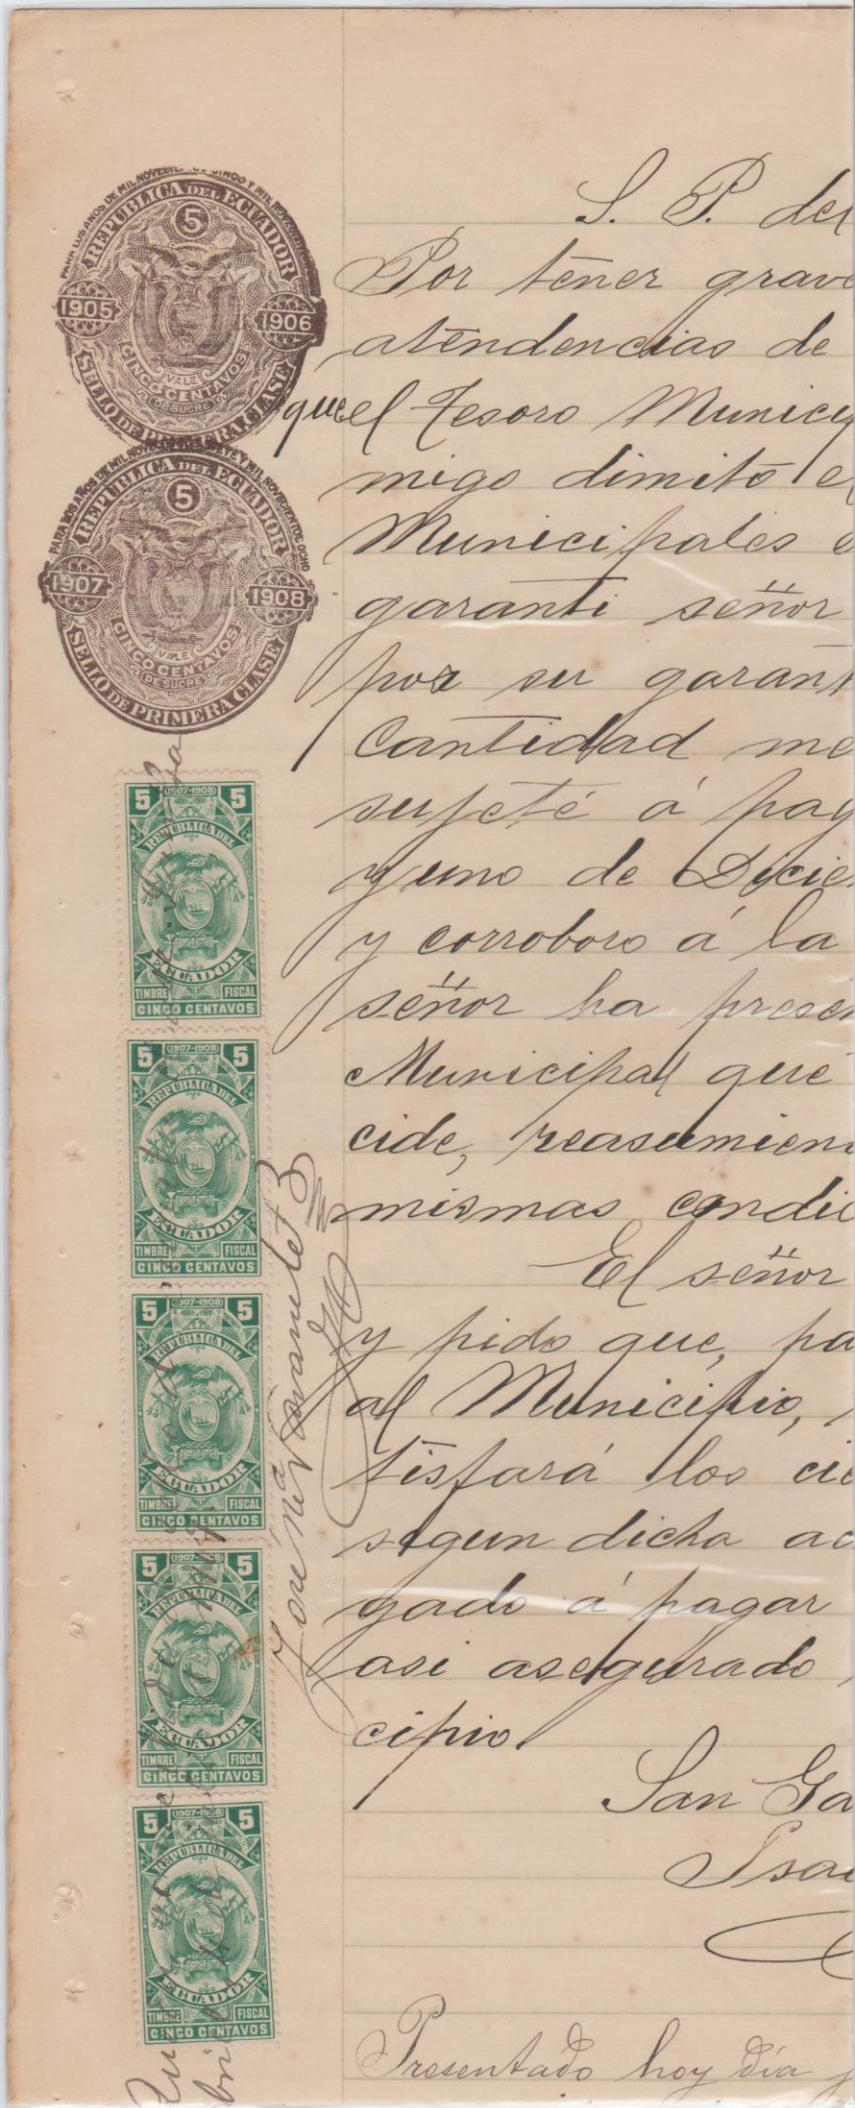 PARA LOS AÑOS DE MIL NOVECIENTOS CINCO Y MIL NOVECIENTOS
REPUBLICA DEL ECUADOR
5
1905
1906
VALE
CINCO CENTAVOS
DE SUCRE
SELLO DE PRIMERA CLASE
PARA LOS AÑOS DE MIL NOVECIENTOS SIETE Y MIL NOVECIENTOS OCHO
REPUBLICA DEL ECUADOR
5
1907
1908
VALE
CINCO CENTAVOS
DE SUCRE
SELLO DE PRIMERA CLASE
5 (1907-1908) 5
REPUBLICA DEL
ECUADOR
TIMBRE FISCAL
CINCO CENTAVOS
5 (1907-1908) 5
REPUBLICA DEL
ECUADOR
TIMBRE FISCAL
CINCO CENTAVOS
5 (1907-1908) 5
REPUBLICA DEL
ECUADOR
TIMBRE FISCAL
CINCO CENTAVOS
5 (1907-1908) 5
REPUBLICA DEL
ECUADOR
TIMBRE FISCAL
CINCO CENTAVOS
5 (1907-1908) 5
REPUBLICA DEL
ECUADOR
TIMBRE FISCAL
CINCO CENTAVOS
S. P. del
Por tener grave
atendencias de
que el Tesoro Municip
migo dimitó el
Municipales e
garanti señor
por su garant
Cantidad me
sujeté á pag
y uno de Dicie
y corroboro á la
señor ha presen
Municipal que
cide, reasumien
mismas condic
El señor
y pido que, pa
al Municipio,
tisfará los cie
segun dicha ac
gado á pagar
asi asegurado
cipio.
San Ga
Isa
Presentado hoy día
José